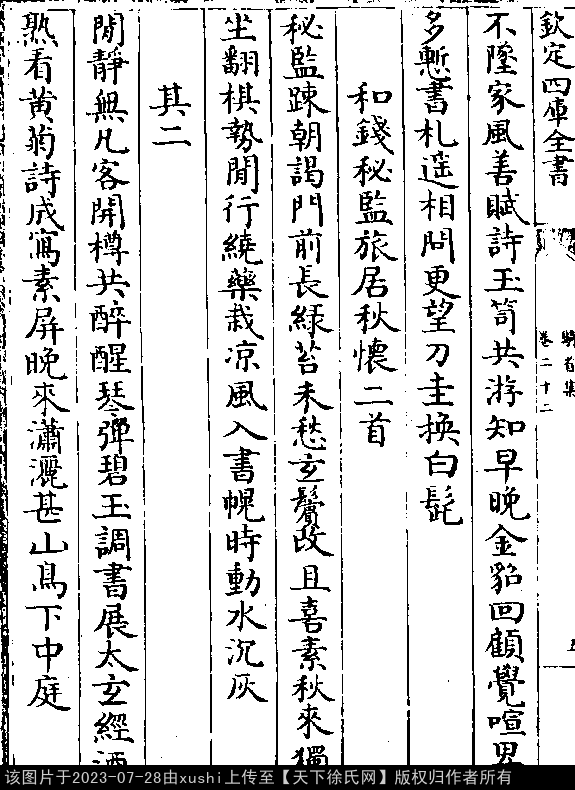 欽定四庫全書
騎省集
卷二十二
五
不墜家風善賦詩玉笥共游知早晚金貂回顧覺喧卑
多慙書札遥相問更望刀圭换白髭
和錢秘監旅居秋懷二首
秘監踈朝謁門前長緑苔未愁玄鬢改且喜素秋來獨
坐翻棋勢閒行繞藥栽凉風入書幌時動水沉灰
其二
閒靜無凡客開樽共醉醒琴彈碧玉調書展太玄經酒
熟看黄菊詩成寫素屏晚來瀟灑甚山鳥下中庭
该图片于2023-07-28由xushi上传至【天下徐氏网】版权归作者所有